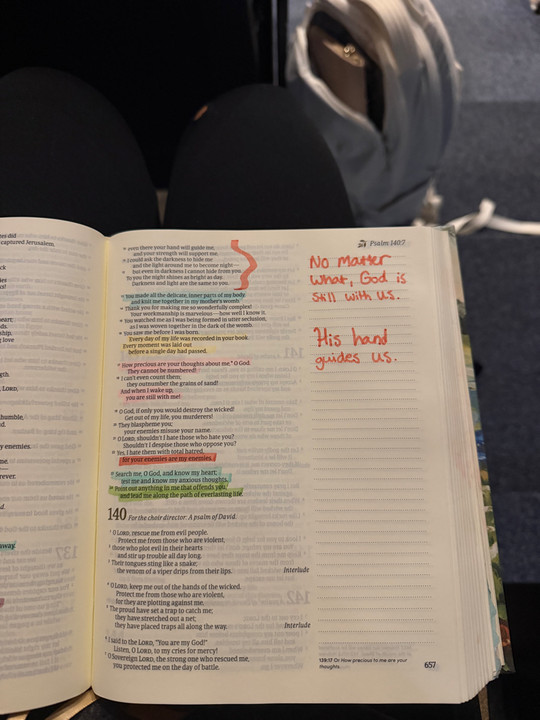 ies did
captured Jerusalem.
ck
ies!
heart;
ds.
ship,
g love
gth.
LORD,
bumble,
d.
y enemies.
me.
rever.
d
away.
Psalm 140:7
¹⁰ even there your hand will guide me,
and your strength will support me.
¹¹ I could ask the darkness to hide me
and the light around me to become night—
¹² but even in darkness I cannot hide from you.
To you the night shines as bright as day.
Darkness and light are the same to you.
¹³ You made all the delicate, inner parts of my body
and knit me together in my mother's womb.
¹⁴ Thank you for making me so wonderfully complex!
Your workmanship is marvelous—how well I know it.
¹⁵ You watched me as I was being formed in utter seclusion,
as I was woven together in the dark of the womb.
¹⁶ You saw me before I was born.
Every day of my life was recorded in your book.
Every moment was laid out
before a single day had passed.
¹⁷ How precious are your thoughts about me,* O God.
They cannot be numbered!
¹⁸ I can't even count them;
they outnumber the grains of sand!
And when I wake up,
you are still with me!
¹⁹ O God, if only you would destroy the wicked!
Get out of my life, you murderers!
²⁰ They blaspheme you;
your enemies misuse your name.
²¹ O LORD, shouldn't I hate those who hate you?
Shouldn't I despise those who oppose you?
²² Yes, I hate them with total hatred,
for your enemies are my enemies.
²³ Search me, O God, and know my heart;
test me and know my anxious thoughts.
²⁴ Point out anything in me that offends you,
and lead me along the path of everlasting life.
140 For the choir director: A psalm of David.
¹ O LORD, rescue me from evil people.
Protect me from those who are violent,
² those who plot evil in their hearts
and stir up trouble all day long.
³ Their tongues sting like a snake;
the venom of a viper drips from their lips. Interlude
⁴ O LORD, keep me out of the hands of the wicked.
Protect me from those who are violent,
for they are plotting against me.
⁵ The proud have set a trap to catch me;
they have stretched out a net;
they have placed traps all along the way. Interlude
⁶ I said to the LORD, "You are my God!"
Listen, O LORD, to my cries for mercy!
⁷ O Sovereign LORD, the strong one who rescued me,
you protected me on the day of battle.
No Matter
What, God is
still with us.
His hand
guides us.
139:17 Or How precious to me are your
thoughts.
657